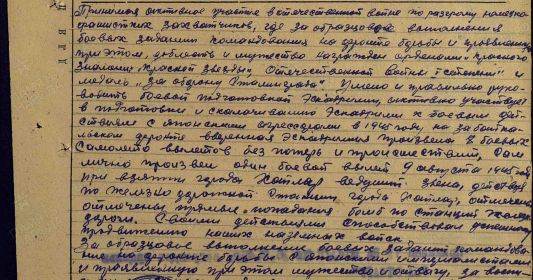 Принимая активное участие в отечественной войне по разгрому немецко
фашистских захватчиков, где за образцовое выполнения
боевых заданий командования на фронте борьбы и проявленные
при этом, доблесть и мужество награжден орденами: Красного
Знамени, Красной Звезды, Отечественной войны I степени" и
медаль "За оборону Сталинграда". Умело и правильно руко-
водить боевой подготовкой Эскадрильи, активно участвует
в подготовке и сколачиванию Эскадрильи к боевым дей-
ствиям с японскими агрессорами в 1945 году, на забайка-
льском фронте вверенная Эскадрилья произвела 8 боевых
самолето вылетов без потерь и происшествий, Сам
лично произвел один боевой вылет 9 августа 1945 году
при взятии города Хайлар ведущим звена, действуя
по железно дорожной станции город Хайлар, отлично
отмечены прямые попадания бомб по станции желез
дороги. Своими действиями способствовал успешному
продвижению наших наземных войск.
За образцовое выполнение боевых заданий командова-
ния на фронте борьбы с японскими империалистами
и проявленную при этом мужество и отвагу, за